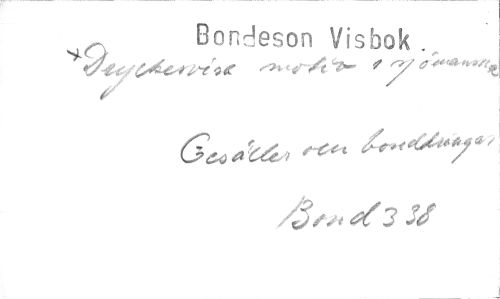 Bondeson Visbok.
xDryckesvisa motiv i sjömanska
Gesäller och bonddrängar
Bond 338